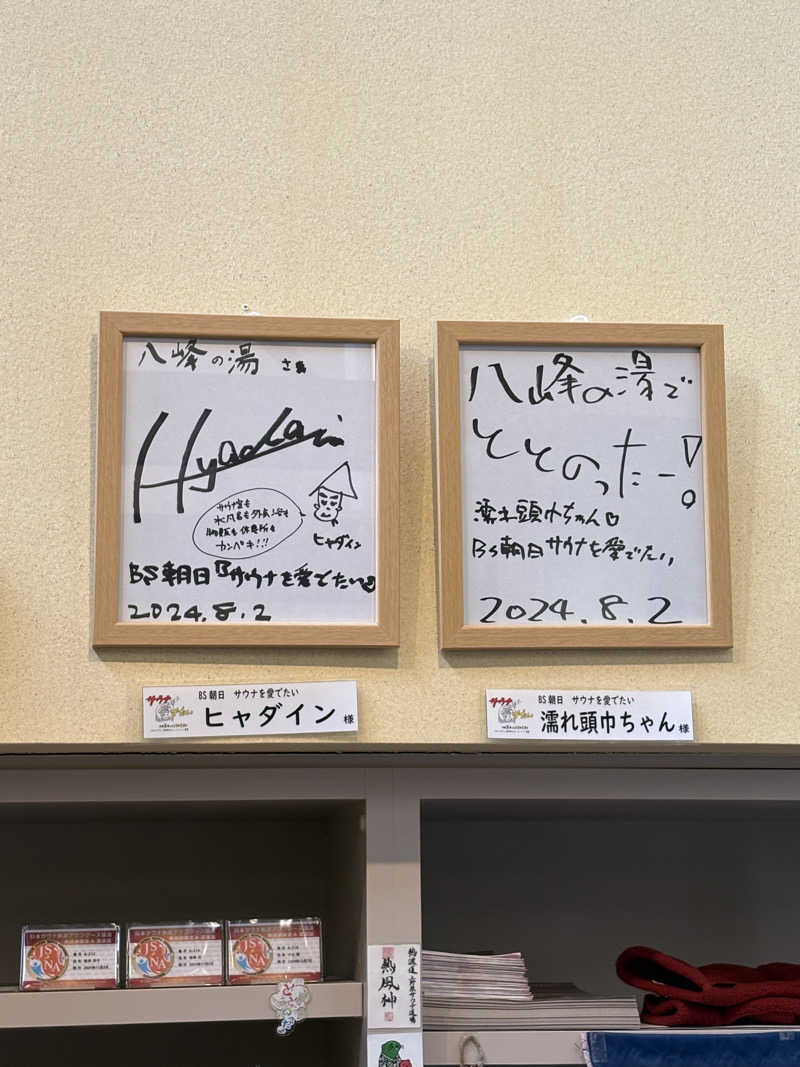 八峰の湯 さま
Hyadain
サウナ室も
水風呂も外気浴も
物販も休憩所も
カンペキ!!!
ヒャダイン
BS朝日『サウナを愛でたい』
2024.8.2
八峰の湯で
ととのったー!
濡れ頭巾ちゃん
BS朝日サウナを愛でたい
2024.8.2
BS朝日 サウナを愛でたい
ヒャダイン 様
BS朝日 サウナを愛でたい
濡れ頭巾ちゃん 様
熱風神